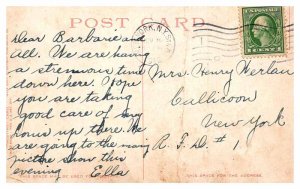 POST CARD
Dear Barbara and
All. We are having
a strenuous time
down here. Hope
you are taking
good care of any
bones up there. We
are going to the many
picture show this
evening. Ella
U.S. POSTAGE
1 CENT 1
Mrs. Henry Werlau
Callicoon
New York
R. F. D. # 1
THIS SPACE FOR THE ADDRESS.